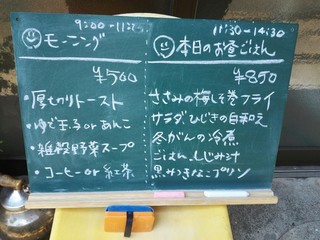 9:00-11:
モーニング
¥500
・厚切りトースト
・ゆで玉子orあんこ
・雑穀野菜スープ
・コーヒーor紅茶
11:30-14:30
本日のお昼ごはん
¥850
ささみの梅しそ巻フライ
サラダ ひじきの白和え
冬がんの冷煮
ごはん しじみ汁
黒みつきなこプリン